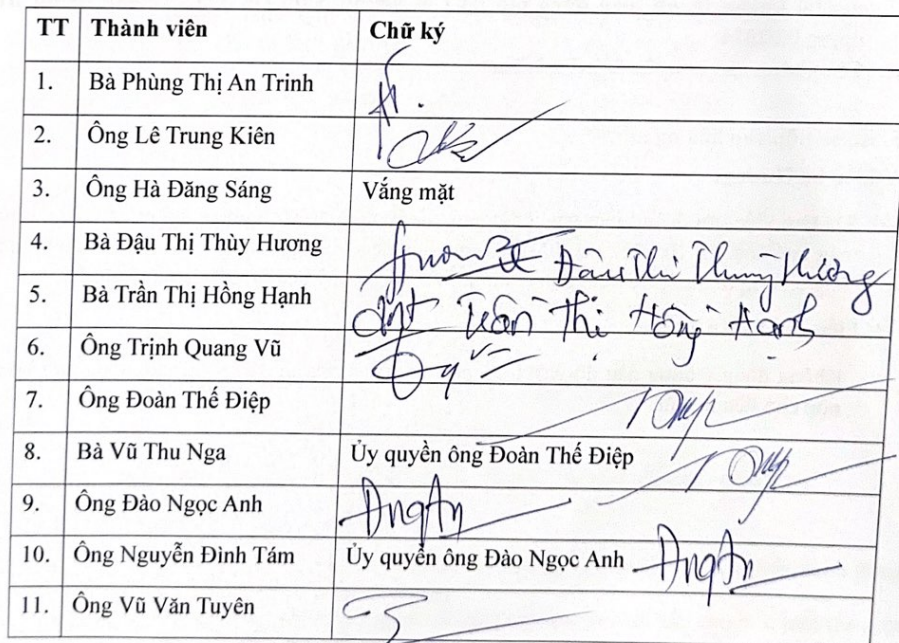 TT Thành viên Chữ ký
1. Bà Phùng Thị An Trinh
2. Ông Lê Trung Kiên
3. Ông Hà Đăng Sáng Vắng mặt
4. Bà Đậu Thị Thùy Hương Đậu Thị Thùy Hương
5. Bà Trần Thị Hồng Hạnh Trần Thị Hồng Hạnh
6. Ông Trịnh Quang Vũ
7. Ông Đoàn Thế Điệp
8. Bà Vũ Thu Nga Ủy quyền ông Đoàn Thế Điệp
9. Ông Đào Ngọc Anh
10. Ông Nguyễn Đình Tám Ủy quyền ông Đào Ngọc Anh
11. Ông Vũ Văn Tuyên